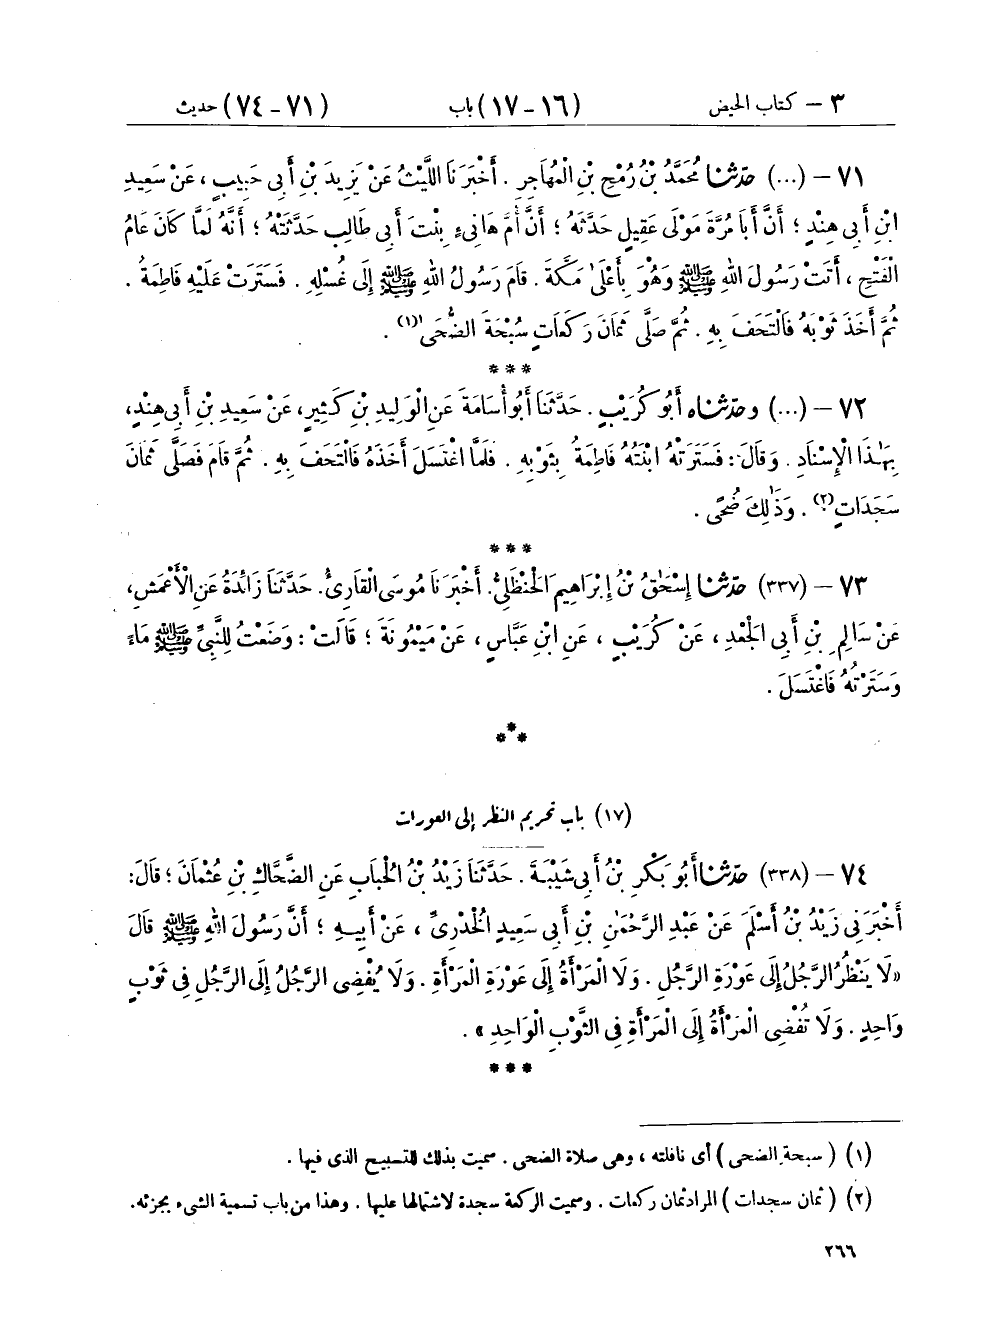 ٣ – كتاب الحيض (١٦ – ١٧) باب (٧١ – ٧٤) حديث
٧١ – (...) حدّثنا مُحَمَّدُ بْنُ رُمْحِ بْنِ الْمُهَاجِرِ . أَخْبَرَنَا اللَّيْثُ عَنْ يَزِيدَ بْنِ أَبِى حَبِيبٍ ، عَنْ سَعِيدِ
ابْنِ أَبِى هِنْدٍ ؛ أَنَّ أَبَا مُرَّةَ مَوْلَى عَقِيلٍ حَدَّثَهُ ؛ أَنَّ أُمَّ هَانِىءٍ بِنْتَ أَبِى طَالِبٍ حَدَّثَتْهُ ؛ أَنَّهُ لَمَّا كَانَ عَامُ
الْفَتْحِ ، أَتَتْ رَسُولَ اللهِ ﷺ وَهْوَ بِأَعْلَىٰ مَكَّةَ . قَامَ رَسُولُ اللهِ ﷺ إِلَى غُسْلِهِ . فَسَتَرَتْ عَلَيْهِ فَاطِمَةُ .
ثُمَّ أَخَذَ ثَوْبَهُ فَالْتَحَفَ بِهِ . ثُمَّ صَلَّى ثَمَانَ رَكَعَاتٍ سُبْحَةَ الضُّحَى (١) .
***
٧٢ – (...) وحدّثناه أَبُو كُرَيْبٍ . حَدَّثَنَا أَبُو أُسَامَةَ عَنِ الْوَلِيدِ بْنِ كَثِيرٍ ، عَنْ سَعِيدِ بْنِ أَبِى هِنْدٍ ،
بِهَٰذَا الْإِسْنَادِ . وَقَالَ : فَسَتَرَتْهُ ابْنَتُهُ فَاطِمَةُ بِثَوْبِهِ . فَلَمَّا اغْتَسَلَ أَخَذَهُ فَالْتَحَفَ بِهِ . ثُمَّ قَامَ فَصَلَّى ثَمَانَ
سَجَدَاتٍ (٢) . وَذَٰلِكَ ضُحًى .
***
٧٣ – (٣٣٧) حدّثنا إِسْحَٰقُ بْنُ إِبْرَاهِيمَ الْحَنْظَلِىُّ . أَخْبَرَنَا مُوسَى الْقَارِئُ . حَدَّثَنَا زَائِدَةُ عَنِ الْأَعْمَشِ ،
عَنْ سَالِمِ بْنِ أَبِى الْجَعْدِ ، عَنْ كُرَيْبٍ ، عَنِ ابْنِ عَبَّاسٍ ، عَنْ مَيْمُونَةَ ؛ قَالَتْ : وَضَعْتُ لِلنَّبِىِّ ﷺ مَاءً
وَسَتَرْتُهُ فَاغْتَسَلَ .
***
(١٧) باب تحريم النظر إلى العورات
٧٤ – (٣٣٨) حدّثنا أَبُو بَكْرِ بْنُ أَبِى شَيْبَةَ . حَدَّثَنَا زَيْدُ بْنُ الْحُبَابِ عَنِ الضَّحَّاكِ بْنِ عُثْمَانَ ؛ قَالَ :
أَخْبَرَنِى زَيْدُ بْنُ أَسْلَمَ عَنْ عَبْدِ الرَّحْمَٰنِ بْنِ أَبِى سَعِيدٍ الْخُدْرِىِّ ، عَنْ أَبِيهِ ؛ أَنَّ رَسُولَ اللهِ ﷺ قَالَ
« لَا يَنْظُرُ الرَّجُلُ إِلَى عَوْرَةِ الرَّجُلِ . وَلَا الْمَرْأَةُ إِلَى عَوْرَةِ الْمَرْأَةِ . وَلَا يُفْضِى الرَّجُلُ إِلَى الرَّجُلِ فِى ثَوْبٍ
وَاحِدٍ . وَلَا تُفْضِى الْمَرْأَةُ إِلَى الْمَرْأَةِ فِى الثَّوْبِ الْوَاحِدِ » .
***
(١) ( سبحة الضحى ) أى نافلته ، وهى صلاة الضحى . سميت بذلك للتسبيح الذى فيها .
(٢) ( ثمان سجدات ) المراد ثمان ركعات . وسميت الركعة سجدة لاشتمالها عليها . وهذا من باب تسمية الشىء بجزئه .
٢٦٦